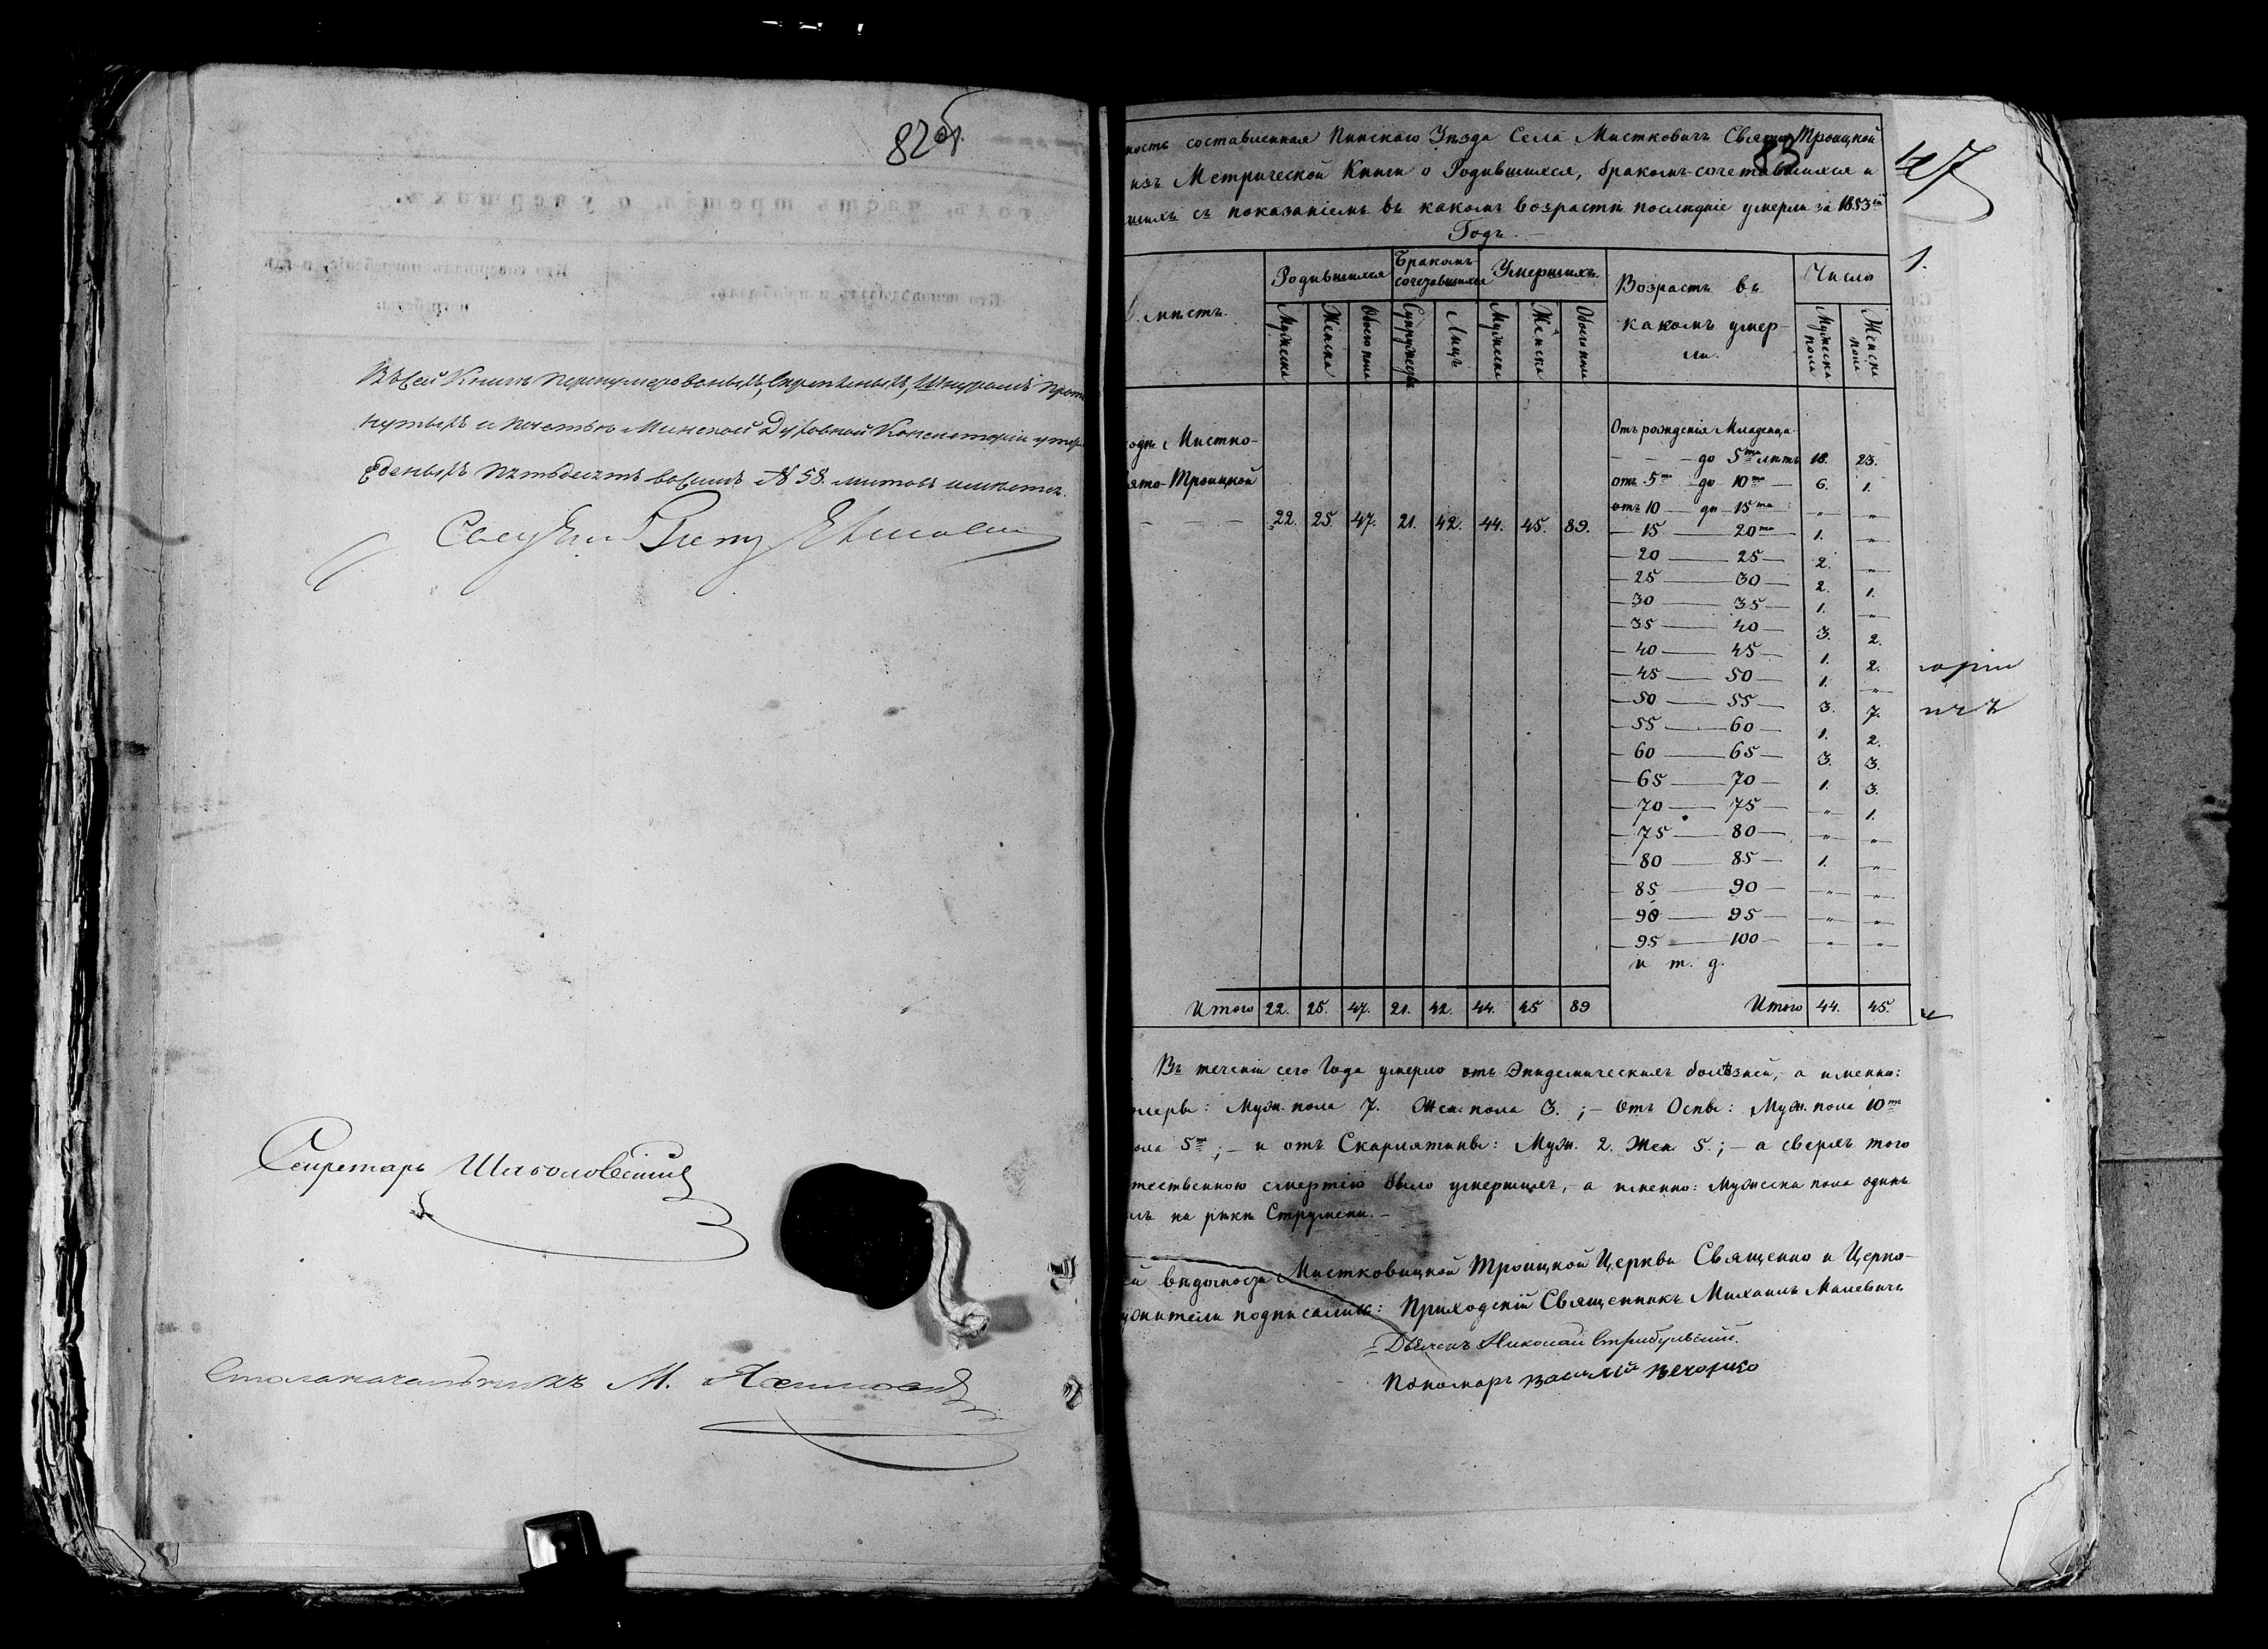 82об.
Въ сей Книгѣ перенумерованыхъ, скрѣпленыхъ, Шнуромъ
нутыхъ и печатью Минской Духовной Консисторіи
жденыхъ пятьдесятъ восемь № 58. листовъ имѣется.
Секретарь
Столоначальникъ М.
ность составленная Пинскаго Уѣзда Села Мистковичъ Свято Троицкой
83
47
изъ Метрической Книги о Родившихся, бракомъ-сочетавшихся и
шихъ съ показаніемъ въ какомъ возрастѣ послѣдніе умерли за 1853й
Годъ.
1.
мѣстъ.
Родившихся
Бракомъ сочетавшихся
Умершихъ.
Возрастъ въ какомъ умерли.
Число
Мужеска
Женска
Обоего пола
Супружествъ
Лицъ
Мужеска
Женска
Обоего пола
Мужеска пола
Женска пола
Отъ рожденія Младенца
одѣ Мистко-
до 5ти лѣтъ 18. 23.
ято-Троицкой
отъ 5ти до 10ти 6. 1.
отъ 10 до 15ти „ „
22. 25. 47. 21. 42. 44. 45. 89.
15 20ти 1. „
20 25 2. „
25 30 2. 1.
30 35 1. „
35 40 3. 2.
40 45 1. 2.
45 50 1. „
50 55 3. 7.
55 60 1. 2.
60 65 3. 3.
65 70 1. 3.
70 75 „ 1.
75 80 „ „
80 85 1. „
85 90 „ „
90 95 „ „
95 100 „ „
и т. д.
Итого 22. 25. 47. 21. 42. 44. 45 89
Итого 44. 45.
торіи
Въ теченіи сего Года умерло отъ Эпидемическихъ болѣзней, а именно:
леры: Муж. пола 7. Жен. пола 3.; – Отъ Оспы: Муж. пола 10ти
ола 5ти; – и отъ Скарлятины: Муж. 2. Жен. 5.; – а сверхъ того
тественною смертію было умершихъ, а именно: Мужеска пола одинъ
лъ на рѣкѣ Струмени. –
ей вѣдомости Мистковицкой Троицкой Церкви Священно и Церко-
ужители подписались: Приходскій Священникъ Михаилъ Малевичъ
Дьячекъ Николай
Пономарь Василій